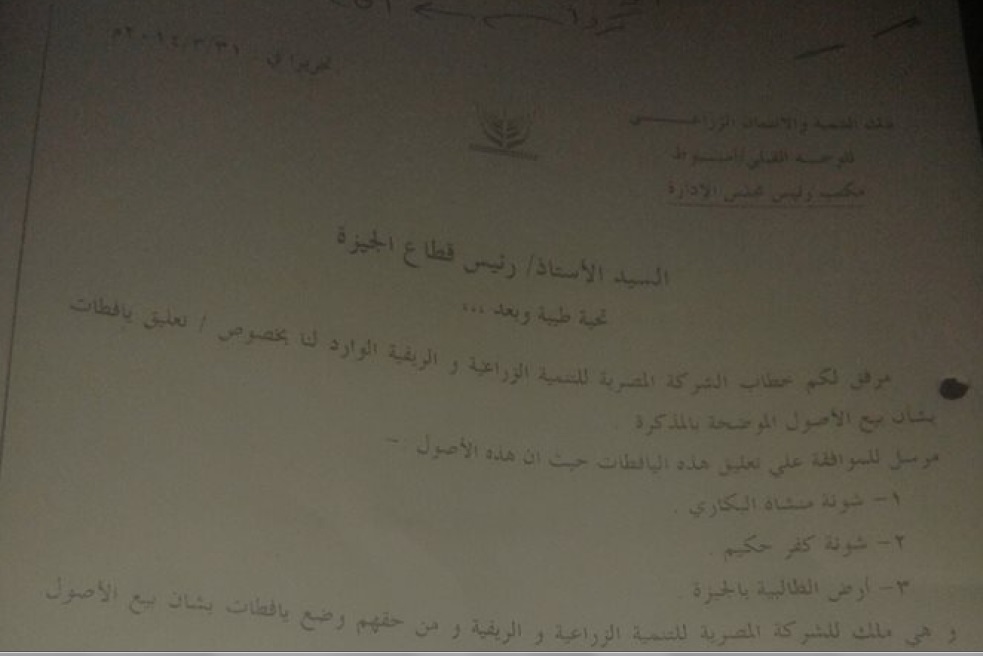 تحريرا في : ٢٠١٤/٣/٣١م
بنك التنمية والائتمان الزراعي
للوجه القبلي/أسيوط
مكتب رئيس مجلس الإدارة
السيد الأستاذ/ رئيس قطاع الجيزة
تحية طيبة وبعد ...
مرفق لكم خطاب الشركة المصرية للتنمية الزراعية و الريفية الوارد لنا بخصوص / تعليق يافطات
بشأن بيع الأصول الموضحة بالمذكرة .
مرسل للموافقة علي تعليق هذه اليافطات حيث ان هذه الأصول :-
١- شونة منشاة البكاري .
٢- شونة كفر حكيم .
٣- أرض الطالبية بالجيزة .
و هي ملك للشركة المصرية للتنمية الزراعية و الريفية و من حقهم وضع يافطات بشان بيع الأصول